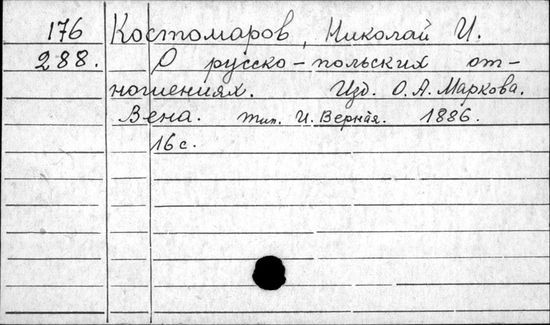 176 Костомаров, Николай И.
288. О русско-польских от-
ношениях. Изд. О.А. Маркова.
Вена. тип. И. Верная. 1886.
16 с.